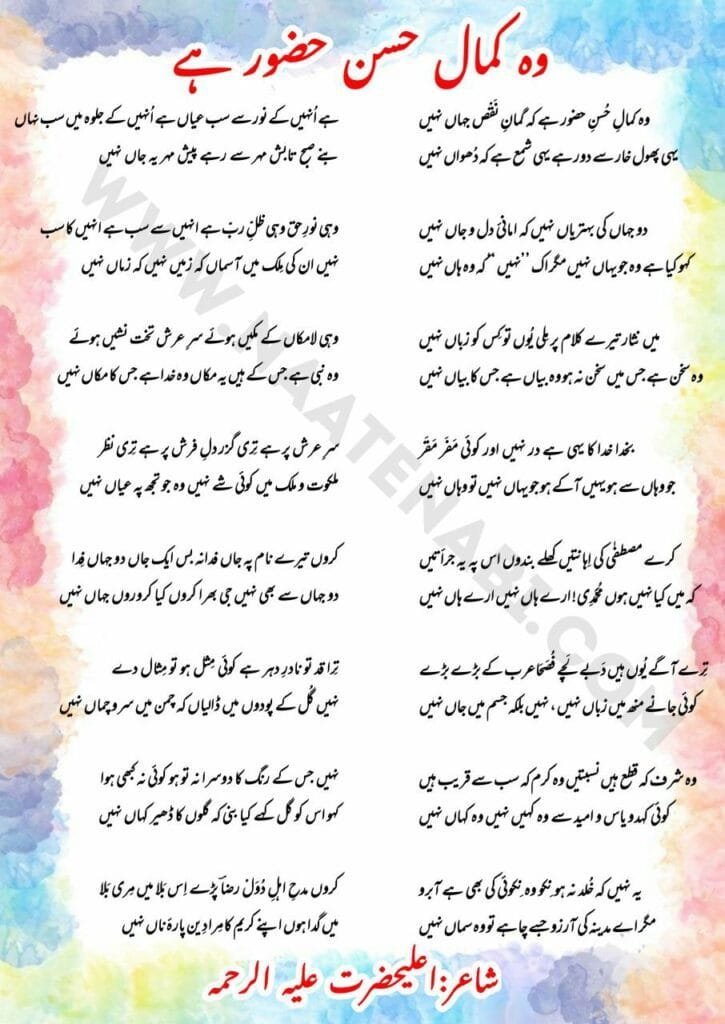 وہ کمال حسن حضور ہے
وہ کمالِ حُسنِ حضور ہے کہ گمانِ نَقْص جہاں نہیں
یہی پھول خار سے دور ہے یہی شمع ہے کہ دُھواں نہیں
دو جہاں کی بہتریاں نہیں کہ امانیٔ دل و جاں نہیں
کہو کیا ہے وہ جو یہاں نہیں مگر اک ’’نہیں‘‘ کہ وہ ہاں نہیں
میں نثار تیرے کلام پر ملی یُوں تو کِس کو زباں نہیں
وہ سخن ہے جس میں سخن نہ ہو وہ بیاں ہے جس کا بیاں نہیں
بخدا خدا کا یہی ہے در نہیں اور کوئی مَفَر مَقَر
جو وہاں سے ہو یہیں آکے ہو جو یہاں نہیں تو وہاں نہیں
کرے مصطفٰی کی اِہانتیں کھلے بندوں اس پہ یہ جرأتیں
کہ میں کیا نہیں ہوں مُحَمَّدِی! ارے ہاں نہیں ارے ہاں نہیں
تِرے آگے یُوں ہیں دَبے لَچے فُصَحا عرب کے بڑے بڑے
کوئی جانے منھ میں زباں نہیں، نہیں بلکہ جسم میں جاں نہیں
وہ شرف کہ قطع ہیں نسبتیں وہ کرم کہ سب سے قریب ہیں
کوئی کہدو یاس و امید سے وہ کہیں نہیں وہ کہاں نہیں
یہ نہیں کہ خُلد نہ ہو نِکو وہ نِکوئی کی بھی ہے آبرو
مگر اے مدینہ کی آرزو جسے چاہے تو وہ سماں نہیں
ہے اُنہیں کے نور سے سب عیاں ہے اُنہیں کے جلوہ میں سب نہاں
بنے صبح تابش مہر سے رہے پیش مہر یہ جاں نہیں
وہی نورِ حق وہی ظلِّ ربّ ہے انہیں سے سب ہے انہیں کا سب
نہیں ان کی مِلک میں آسماں کہ زمیں نہیں کہ زماں نہیں
وہی لامکاں کے مکیں ہوئے سرِ عرش تخت نشیں ہوئے
وہ نبی ہے جس کے ہیں یہ مکاں وہ خدا ہے جس کا مکاں نہیں
سر عرش پر ہے تِری گزر دلِ فرش پر ہے تِری نظر
ملکوت و ملک میں کوئی شے نہیں وہ جو تجھ پہ عیاں نہیں
کروں تیرے نام پہ جاں فدا نہ بس ایک جاں دو جہاں فِدا
دو جہاں سے بھی نہیں جی بھرا کروں کیا کروروں جہاں نہیں
تِرا قد تو نادرِ دہر ہے کوئی مِثل ہو تو مِثال دے
نہیں گُل کے پودوں میں ڈالیاں کہ چمن میں سرو چماں نہیں
نہیں جس کے رنگ کا دوسرا نہ تو ہو کوئی نہ کبھی ہوا
کہو اس کو گل کہے کیا بنی کہ گلوں کا ڈھیر کہاں نہیں
کروں مدحِ اہلِ دُوَل رضاؔ پڑے اِس بَلا میں مِری بَلا
میں گدا ہوں اپنے کریم کا مِرا دِین پارۂ ناں نہیں
شاعر:اعلیحضرت علیہ الرحمہ
WWW.NAATENABI.COM